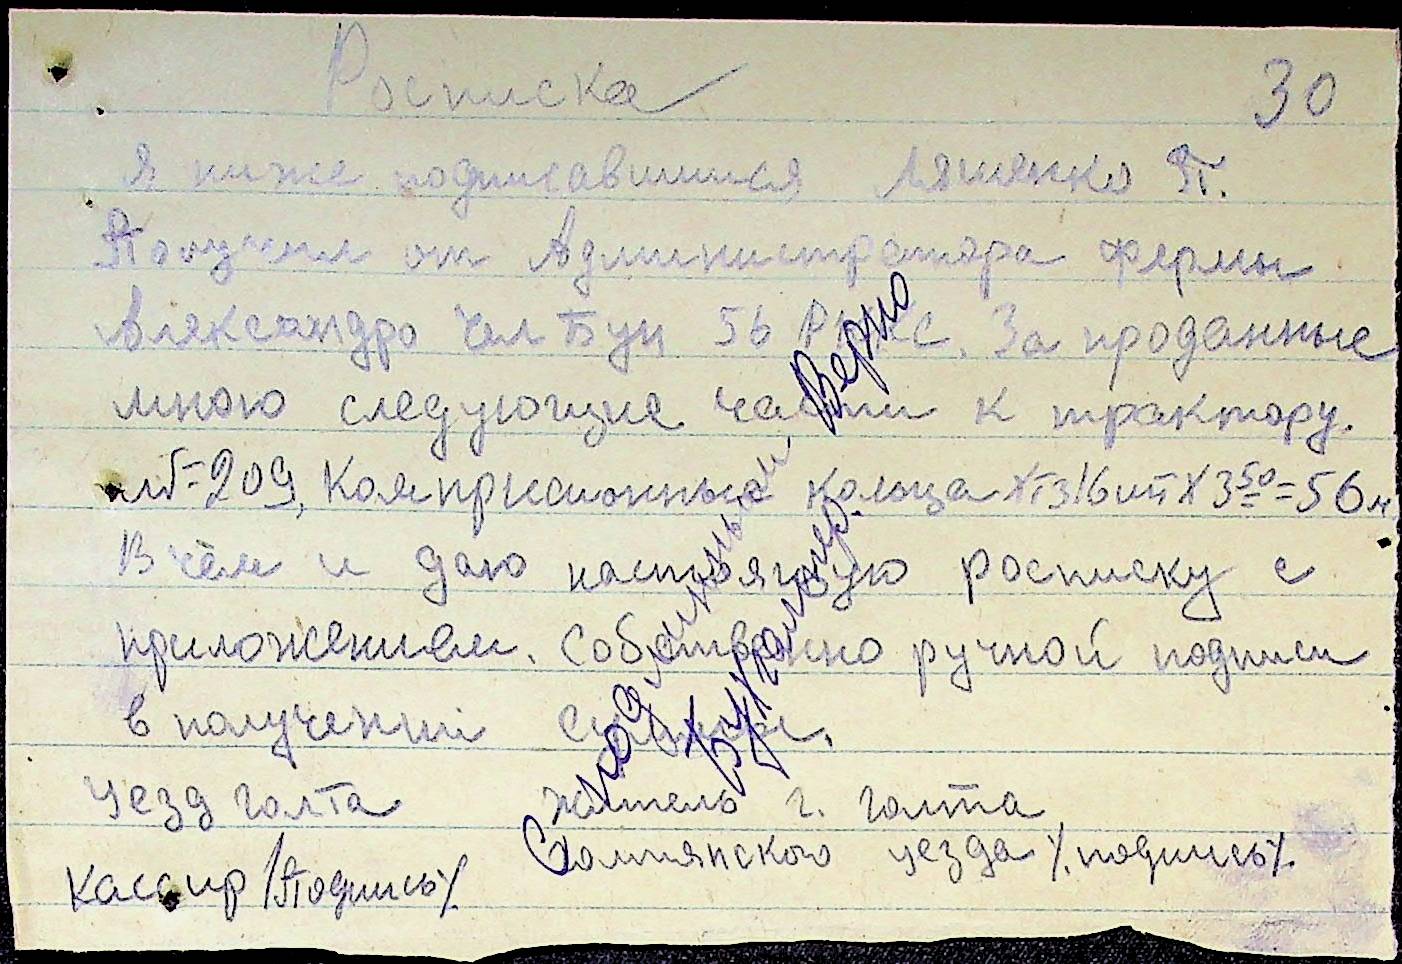 Росписка
30
Я ниже подписавшийся Ляшенко П.
Получил от Администратора фермы
Александро Чел Буц 56 РККС. За проданные
мною следующие части к трактору.
209, Компрысионные кольца 16 шт X 3 50 = 56 м
В чём и даю настоящую росписку с
приложением. Собственно ручной подписи
в получении суммы.
Уезд Голта житель г. Голта
Голтянского уезда /.подпись/.
Кассир /Подпись/.
С подлинным Верно
Бухгалтер